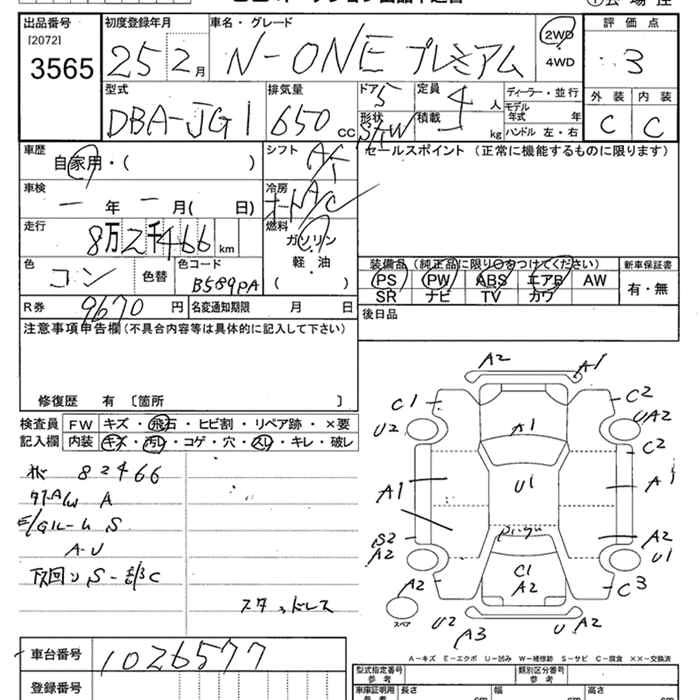 出品番号 初度登録年月 車名・グレード 2WD 4WD 評価点
[2072]
3565 25 2月 N-ONE プレミアム 3
型式 排気量 ドア 定員 ディーラー・並行 外装 内装
DBA-JG1 650 cc 5 4 人 モデル年式 年 C C
形状 積載 kg ハンドル 左・右
車歴 シフト セールスポイント (正常に機能するものに限ります)
自家用・( ) AT
車検 冷房
一 年 一 月( 日) オートA/C
走行 燃料
8万2千466 km ガソリン
軽・油
( )
色 色替 色コード 装備品 (純正品に限り○をつけてください) 新車保証書
コン B589PA PS PW ABS エアB AW 有・無
SR ナビ TV カワ
R券 9670 円 名変通知期限 月 日 後日品
注意事項申告欄(不具合内容等は具体的に記入して下さい)
修復歴 有 〔箇所 〕
検査員 FW キズ・飛石・ヒビ割・リペア跡・×要
記入欄 内装 キズ・汚レ・コゲ・穴・スレ・キレ・破レ
82466
A
S
A・U
スタッドレス
A2 A1
C1 C2
U2 A1 UA2
C2
A1 U1 A1
S2 A2
A2 U1
C1
A2 A2 C3
スペア U2 A3 U A2
A-キズ E-エクボ U-凹み W-補修跡 S-サビ C-腐食 ××-交換済
車台番号 1026577
登録番号
型式指定番号 参考 類別区分番号 参考
車庫証明用 参考 長さ cm 幅 cm 高さ cm